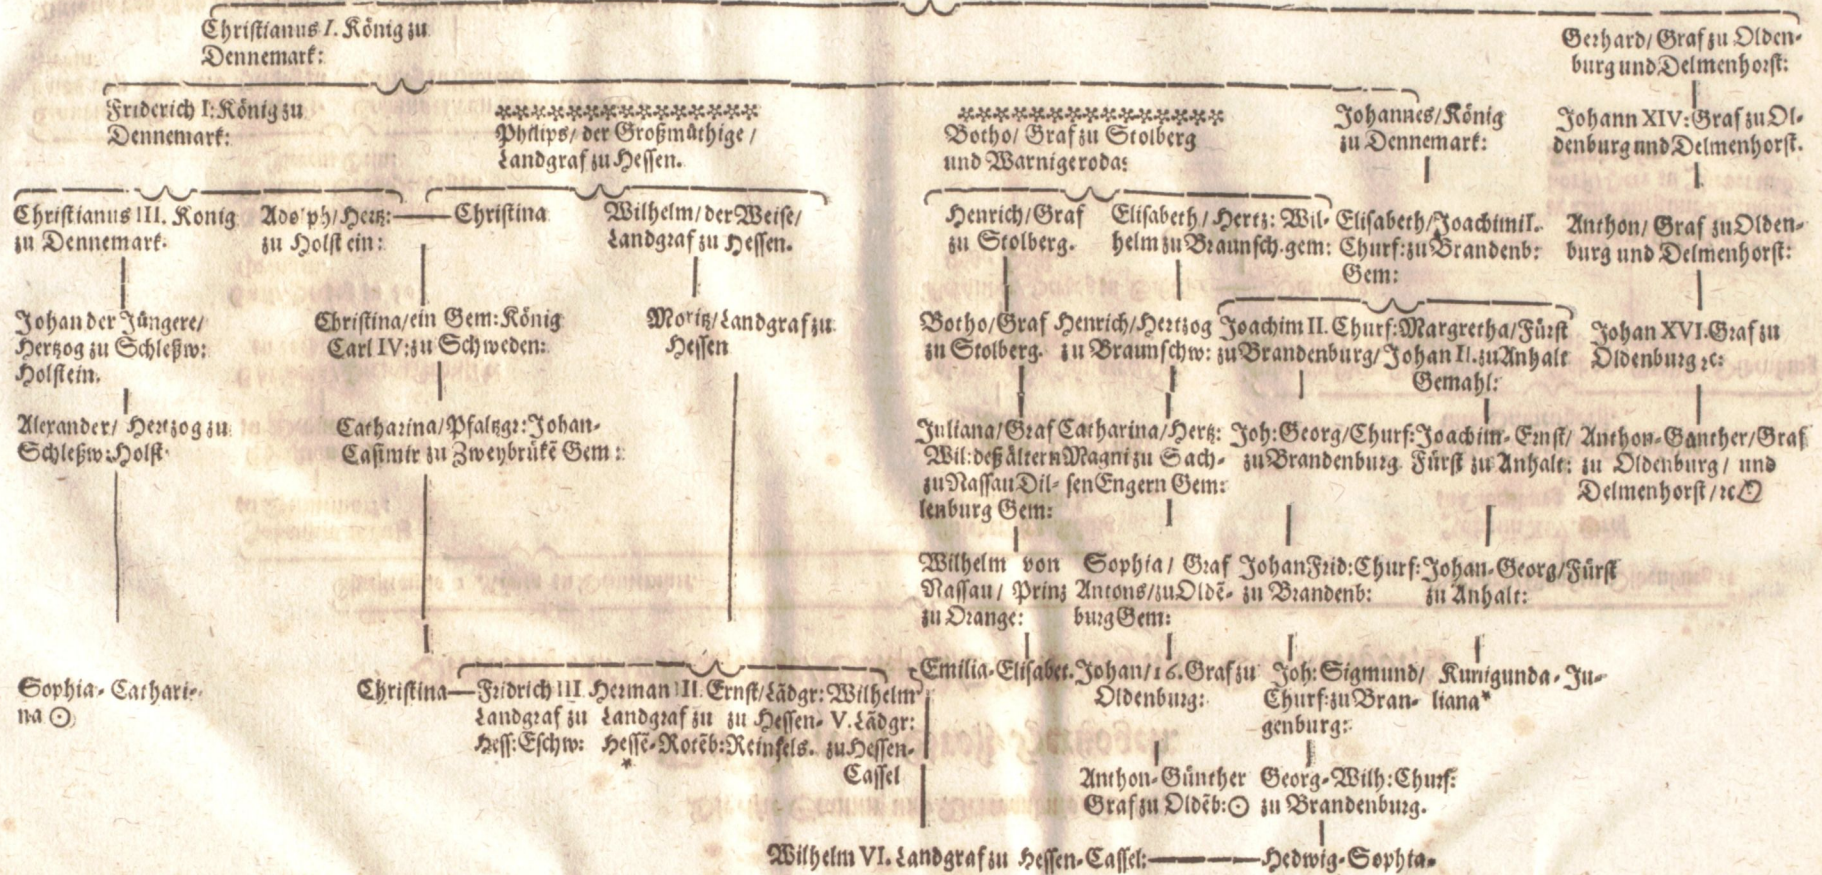 Christianus I. König zu
Dennemark:
Gerhard/ Graf zu Olden-
burg und Delmenhorst:
Friderich I: König zu
Dennemark:
Philips/ der Großmüthige /
Landgraf zu Hessen.
Botho/ Graf zu Stolberg
und Warnigeroda:
Johannes/ König
zu Dennemark:
Johann XIV: Graf zu Ol-
denburg und Delmenhorst.
Christianus III. Konig
zu Dennemark.
Adolph/ Hertz:
zu Holstein:
Christina
Wilhelm/ der Weise/
Landgraf zu Hessen.
Henrich/ Graf
zu Stolberg.
Elisabeth/ Hertz: Wil-
helm zu Braunsch. gem:
Elisabeth/ Joachimi I.
Churf: zu Brandenb:
Gem:
Anthon/ Graf zu Olden-
burg und Delmenhorst:
Johan der Jüngere/
Hertzog zu Schleßw:
Holstein.
Christina/ ein Gem: König
Carl IV: zu Schweden:
Moritz/ Landgraf zu
Hessen
Botho/ Graf
zu Stolberg.
Henrich/ Hertzog
zu Braunschw:
Joachim II. Churf:
zu Brandenburg/
Margretha/ Fürst
Johan II. zu Anhalt
Gemahl:
Johan XVI. Graf zu
Oldenburg ꝛc:
Alexander/ Hertzog zu
Schleßw: Holst.
Catharina/ Pfaltzgr: Johan-
Casimir zu Zweybrükē Gem:
Juliana/ Graf
Wil: deß ältern
zu Nassau Dil-
lenburg Gem:
Catharina/ Hertz:
Magni zu Sach-
sen Engern Gem:
Joh: Georg/ Churf:
zu Brandenburg.
Joachim-Ernst/
Fürst zu Anhalt:
Anthon-Günther/ Graf
zu Oldenburg/ und
Delmenhorst/ ꝛc
Wilhelm von
Nassau/ Prinz
zu Orange:
Sophia/ Graf
Antons/ zu Oldē-
burg Gem:
Johan Frid: Churf:
zu Brandenb:
Johan-Georg/ Fürst
zu Anhalt:
Sophia-Cathari-
na ☉
Christina
Fridrich III
Landgraf zu
Hess: Eschw:
Herman III.
Landgraf zu
Hessē-Rotēb:
*
Ernst/ Lādgr:
zu Hessen-
Reinfels.
Wilhelm
V. Lādgr:
zu Hessen-
Cassel
Emilia-Elisabet.
Johan/ 16. Graf zu
Oldenburg:
Joh: Sigmund/
Churf: zu Bran-
genburg:
Kunigunda-Ju-
liana*
Anthon-Günther
Graf zu Oldēb: ☉
Georg-Wilh: Churf:
zu Brandenburg.
Wilhelm VI. Landgraf zu Hessen-Cassel:
Hedwig-Sophia-